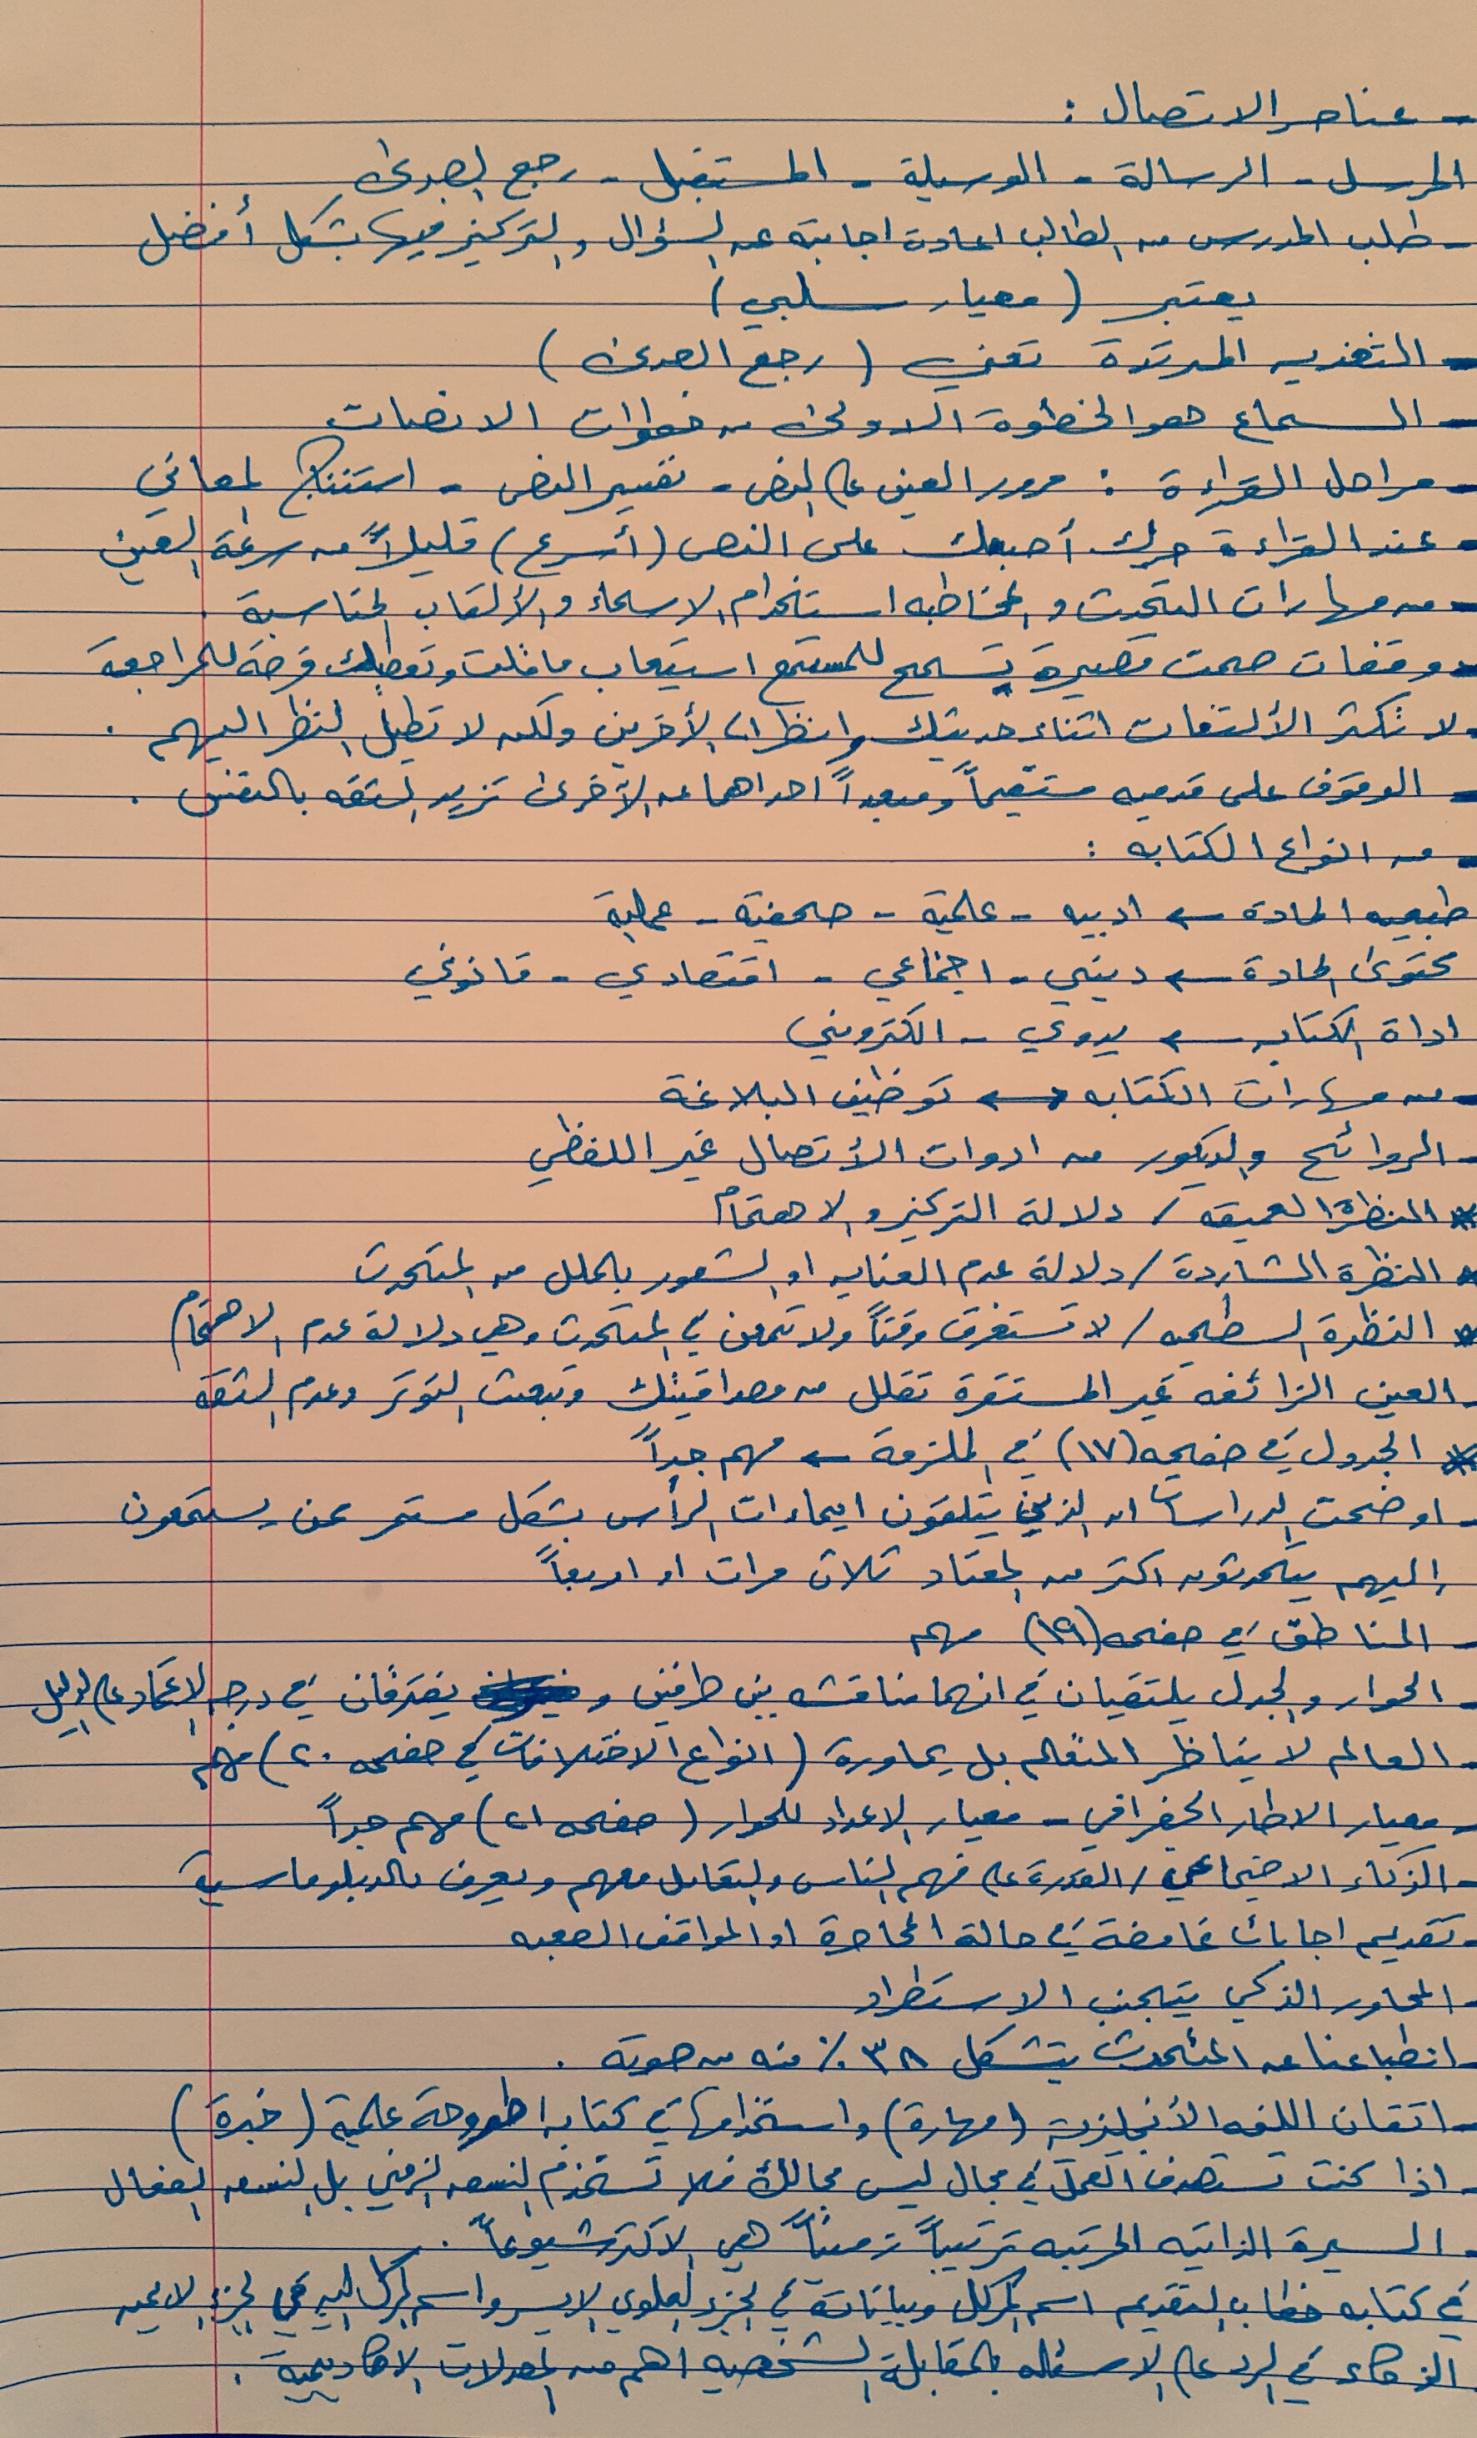 - عناصر الاتصال :
المرسل - الرسالة - الوسيلة - المستقبل - رجع الصدى
- طلب المدرس من الطالب اعادة اجابته عن السؤال والتركيز فيها بشكل أفضل
يعتبر ( معيار سلبي )
- التغذيه المرتدة تعني ( رجع الصدى )
- السماع هو الخطوة الاولى من خطوات الانصات
- مراحل القراءة : مرور العين على النص - تفسير النص - استنتاج المعاني
- عند القراءة حرك أصبعك على النص (أسرع) قليلاً من سرعة العين
- من مهارات التحدث والمخاطبه استخدام الاسماء والألقاب المناسبة .
- وقفات صمت قصيرة تسمح للمستمع استيعاب ماقلت وتعطيك فرصة للمراجعة
- لا تكثر الألتفات اثناء حديثك وانظر الى الأخرين ولكن لا تطيل النظر اليهم .
- الوقوف على قدميه مستقيماً ومبعداً احداهما عن الآخرى تزيد الثقه بالنفس .
- من انواع الكتابه :
طبيعيه المادة ← ادبيه - علمية - صحفيه - عملية
محتوى المادة ← ديني - اجتماعي - اقتصادي - قانوني
اداة الكتابه ← يدوي - الكتروني
- من مهارات الكتابه ← توظيف البلاغة
- الروائح والديكور من ادوات الأتصال غير اللفظي
* النظرة العميقه / دلالة التركيز والاهتمام
* النظرة الشاردة / دلالة عدم العنايه او الشعور بالملل من المتحدث
* النظرة السطحيه / لا تستغرق وقتاً ولا تتمعن في المتحدث وهي دلالة عدم الاهتمام
- العين الزائغه غير المستقرة تقلل من مصداقيتك وتبعث التوتر وعدم الثقه
* الجدول في صفحه (١٧) في الملزمة ← مهم جداً
- اوضحت الدراسات ان الذين يتلقون ايماءات الرأس بشكل مستمر ممن يستمعون
إليهم يتحدثون اكثر من المعتاد ثلاث مرات او اربعاً
- المناطق في صفحه (١٩) مهم
- الحوار والجدل يلتقيان في انهما مناقشه بين طرفين و يفترقان في درجه الاعتماد على الدليل
- العالم لا يناظر المتعلم بل يحاورة ( انواع الاختلافات في صفحه ٢٠) مهم
- معيار الاطار الجغرافي - معيار الاعداد للحوار ( صفحه ٢١ ) مهم جداً
- الذكاء الاجتماعي / القدرة على فهم الناس والتعامل معهم ويعرف بالدبلوماسية
- تقديم اجابات غامضة في حالة المحاصرة او المواقف الصعبه
- المحاور الذكي يتجنب الاستطراد
- انطباعنا عن المتحدث يتشكل ٣٨٪ منه من صوته .
- اتقان اللغه الأنجليزيه (مهارة) واستخدامها في كتابه اطروحة علمية ( خبرة )
- اذا كنت تستهدف العمل في مجال ليس مجالك فلا تستخدم النسعه الزمني بل النسعه الفعال
- السيرة الذاتيه المرتبه ترتيباً زمنياً هي الاكثر شيوعاً .
في كتابه خطاب التقديم اسم المرسل وبياناته في الجزء العلوي الايسر واسم المرسل اليه في الجزء الايمن
الذكاء في الرد على الاسئله بالمقابلة الشخصيه اهم من المعدلات الاكاديمية .